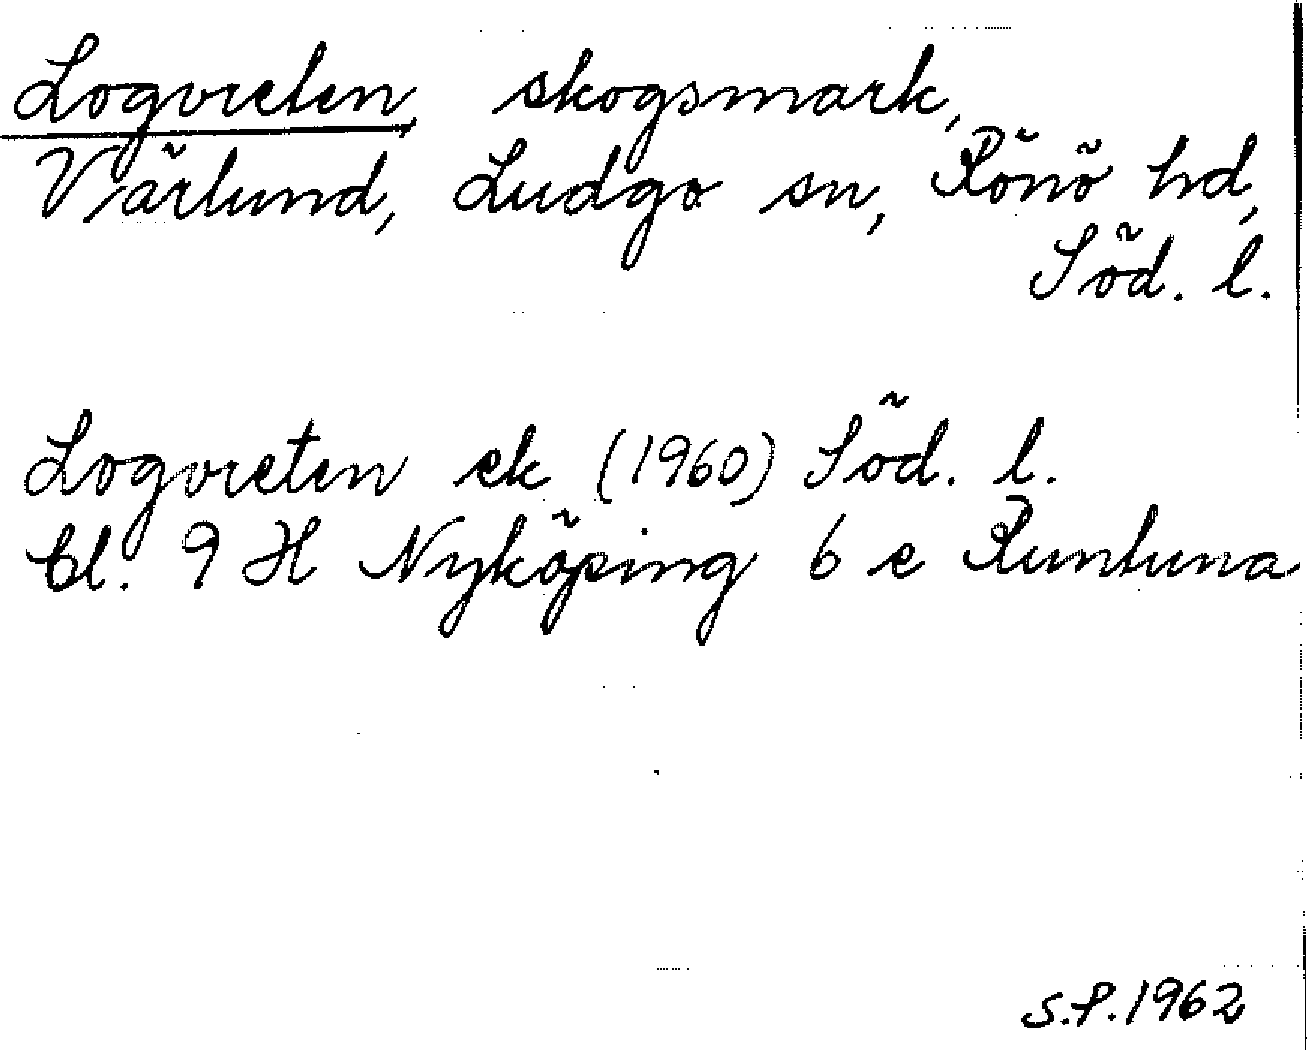 Logvreten, skogsmark,
Värlund, Ludgo sn, Rönö hd,
Söd. l.
Logvreten ek (1960) Söd. l.
Bl. 9 H Nyköping 6 e Runtuna
S.P. 1962